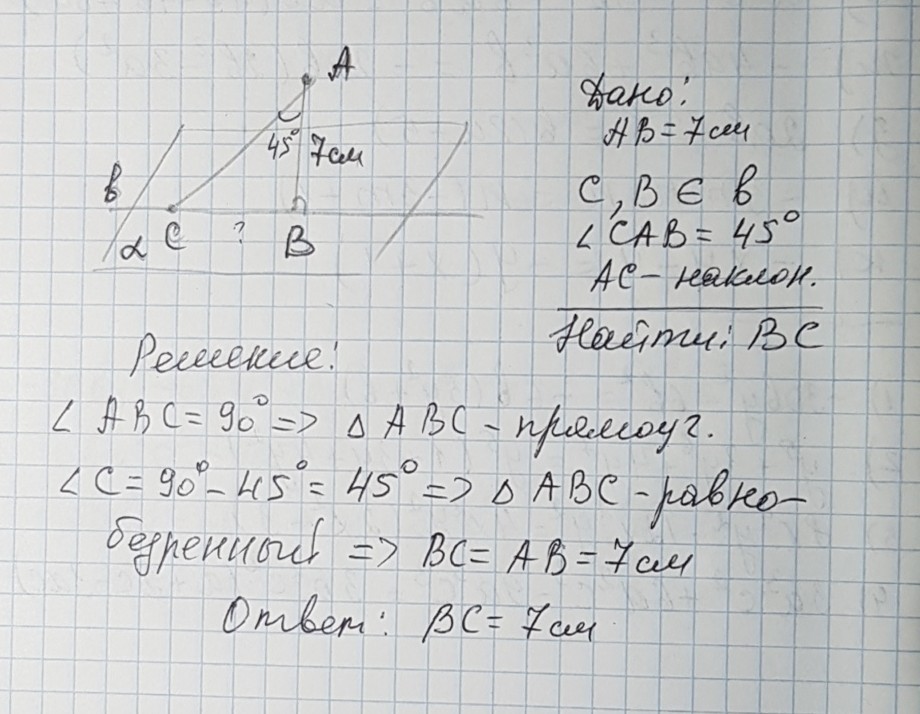 A
45° 7см
в
α C ? B
Дано:
AB = 7 см
C, B ∈ в
∠ CAB = 45°
AC - наклон.
Найти: BC
Решение:
∠ ABC = 90° => △ ABC - прямоуг.
∠ C = 90° - 45° = 45° => △ ABC - равно-
бедренный => BC = AB = 7 см
Ответ: BC = 7 см